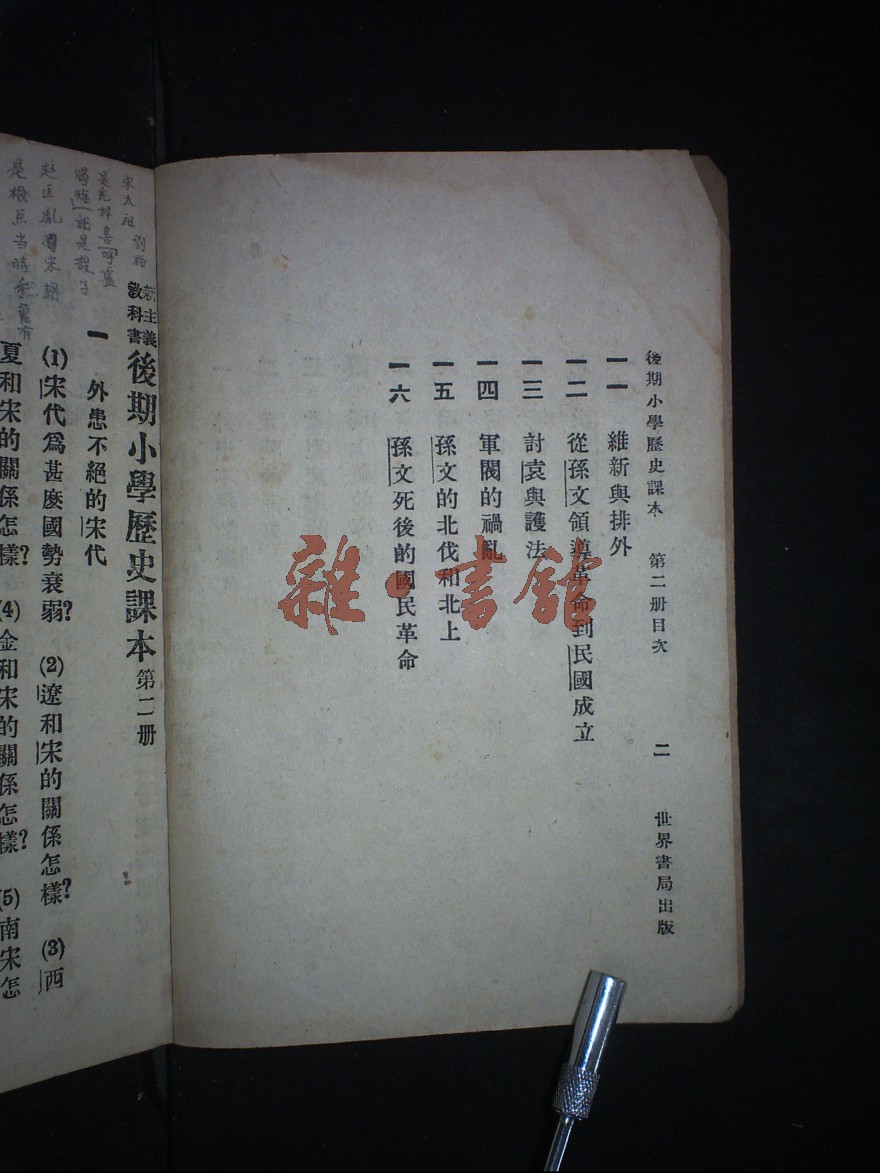 後期小學歷史課本 第二册目次 二 世界書局出版
一一 維新與排外
一二 從孫文領導革命到民國成立
一三 討袁與護法
一四 軍閥的禍亂
一五 孫文的北伐和北上
一六 孫文死後的國民革命
雜·書館
宋太祖 劉裕
新主義教科書 後期小學歷史課本 第二册
一 外患不絕的宋代
(1)宋代爲甚麽國勢衰弱? (2)遼和宋的關係怎樣? (3)西
夏和宋的關係怎樣? (4)金和宋的關係怎樣? (5)南宋怎